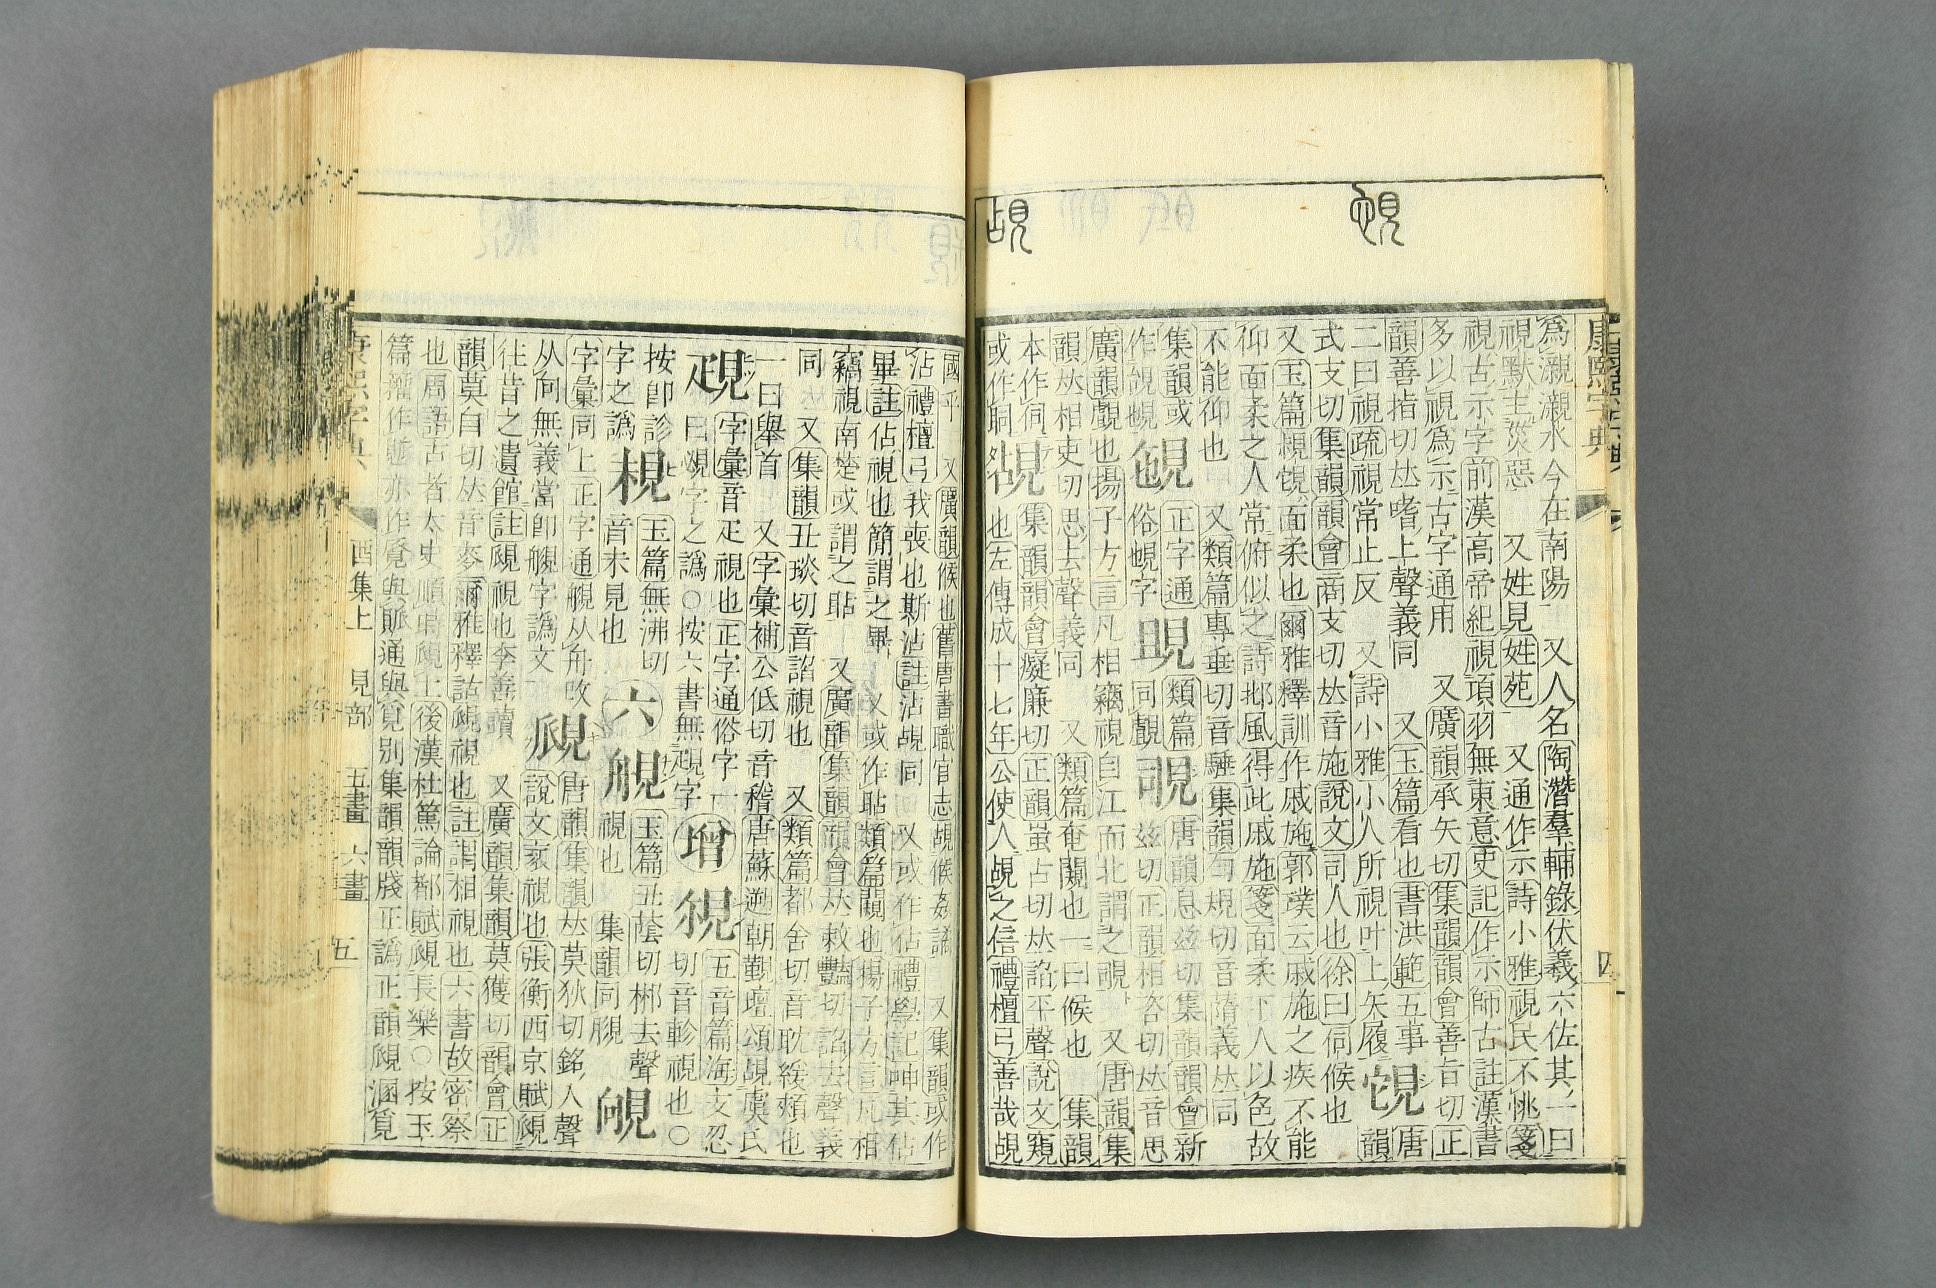 覘
爲灦灦水今在南陽 又人名陶潛羣輔錄伏義六佐其一曰
視默主災惡 又姓見姓苑 又通作示詩小雅視民不恌箋
視古示字前漢高帝紀視項羽無東意史記作示師古註漢書
多以視爲示古字通用 又廣韻承矢切集韻韻會善旨切正
韻善指切𠀤嗜上聲義同 又玉篇看也書洪範五事 唐
二曰視疏視常止反 又詩小雅小人所視叶上矢履 韻
式支切集韻韻會商支切𠀤音施說文司人也徐曰伺候也
又玉篇規覙面柔也爾雅釋訓作戚施郭璞云戚施之疾不能
仰面柔之人常俯似之詩邶風得此戚施箋面柔下人以色故
不能仰也 又類篇專垂切音騅集韻勻規切音隋義𠀤同
集韻或 正字通 類篇 覗 唐韻息玆切集韻韻會新
作覘 俗 字 同覰 玆切正韻相咨切𠀤音思
廣韻覰也揚子方言凡相竊視自江而北謂之覗 又唐韻集
韻𠀤相吏切思去聲義同 又類篇奄闚也一曰候也 集韻
本作伺 集韻韻會癡廉切正韻蚩占切𠀤諂平聲說文窺
或作 覘 也左傳成十七年公使人覘之信禮檀弓善哉覘
國乎 又廣韻候也舊唐書職官志覘候姦譎 又集韻或作
沾禮檀弓我喪也斯沾註沾覘同 又或作佔禮學記呻其佔
畢註佔視也簡謂之畢 又或作貼類篇闚也揚子方言凡相
竊視南楚或謂之貼 又廣韻集韻韻會𠀤敕豔切諂去聲義
同 又集韻丑琰切音諂視也 又類篇都含切音耽緩頰也
一曰舉首 又字彙補公低切音稽唐蘇遡朝覲壇頌覘虞氏
字彙音疋視也正字通俗字 增 五音篇海文忍
曰覘字之譌○按六書無字 切音軫視也○
按卽診 玉篇無沸切 六 玉篇丑蔭切郴去聲
字之譌 音未見也 視也 集韻同
字彙同上正字通 从舟 唐韻集韻𠀤莫狄切銘入聲
从向無義當卽 字譌文 覛 說文衺視也張衡西京賦覛
往昔之遺館註覛視也李善讀 又廣韻集韻莫獲切韻會正
韻莫白切𠀤音麥爾雅釋詁覛視也註謂相視也六書故密察
也周語古者太史順時覛土後漢杜篤論都賦覛長樂○按玉
篇 作 亦作覓與脈通與覓別集韻韻牋正譌正韻覛溷覓
康熙字典 酉集上 見部 五畫 六畫 五
康熙字典 四